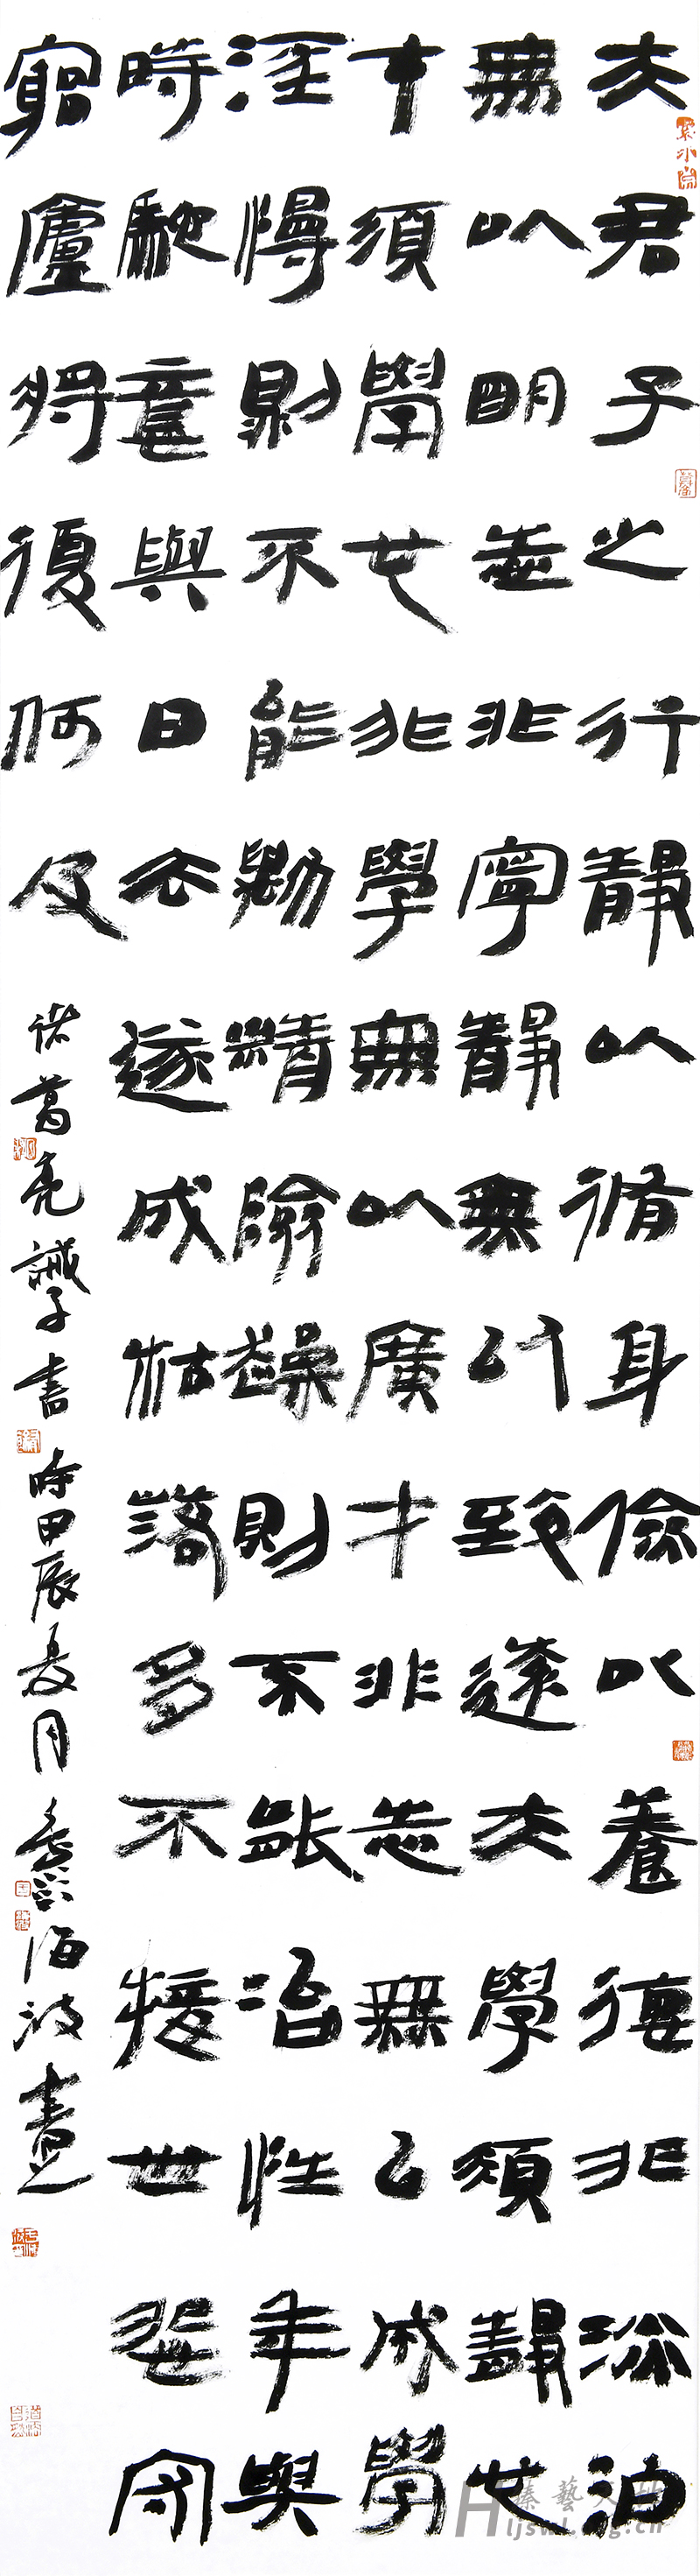 夫君子之行靜以脩身儉以養德非淡泊
無以明志非寧靜無以致遠夫學須靜也
才須學也非學無以廣才非志無以成學
淫慢則不能勵精險躁則不能治性年與
時馳意與日去遂成枯落多不接世悲守
窮廬將復何及
諸葛亮誡子書時甲辰夏月海波書